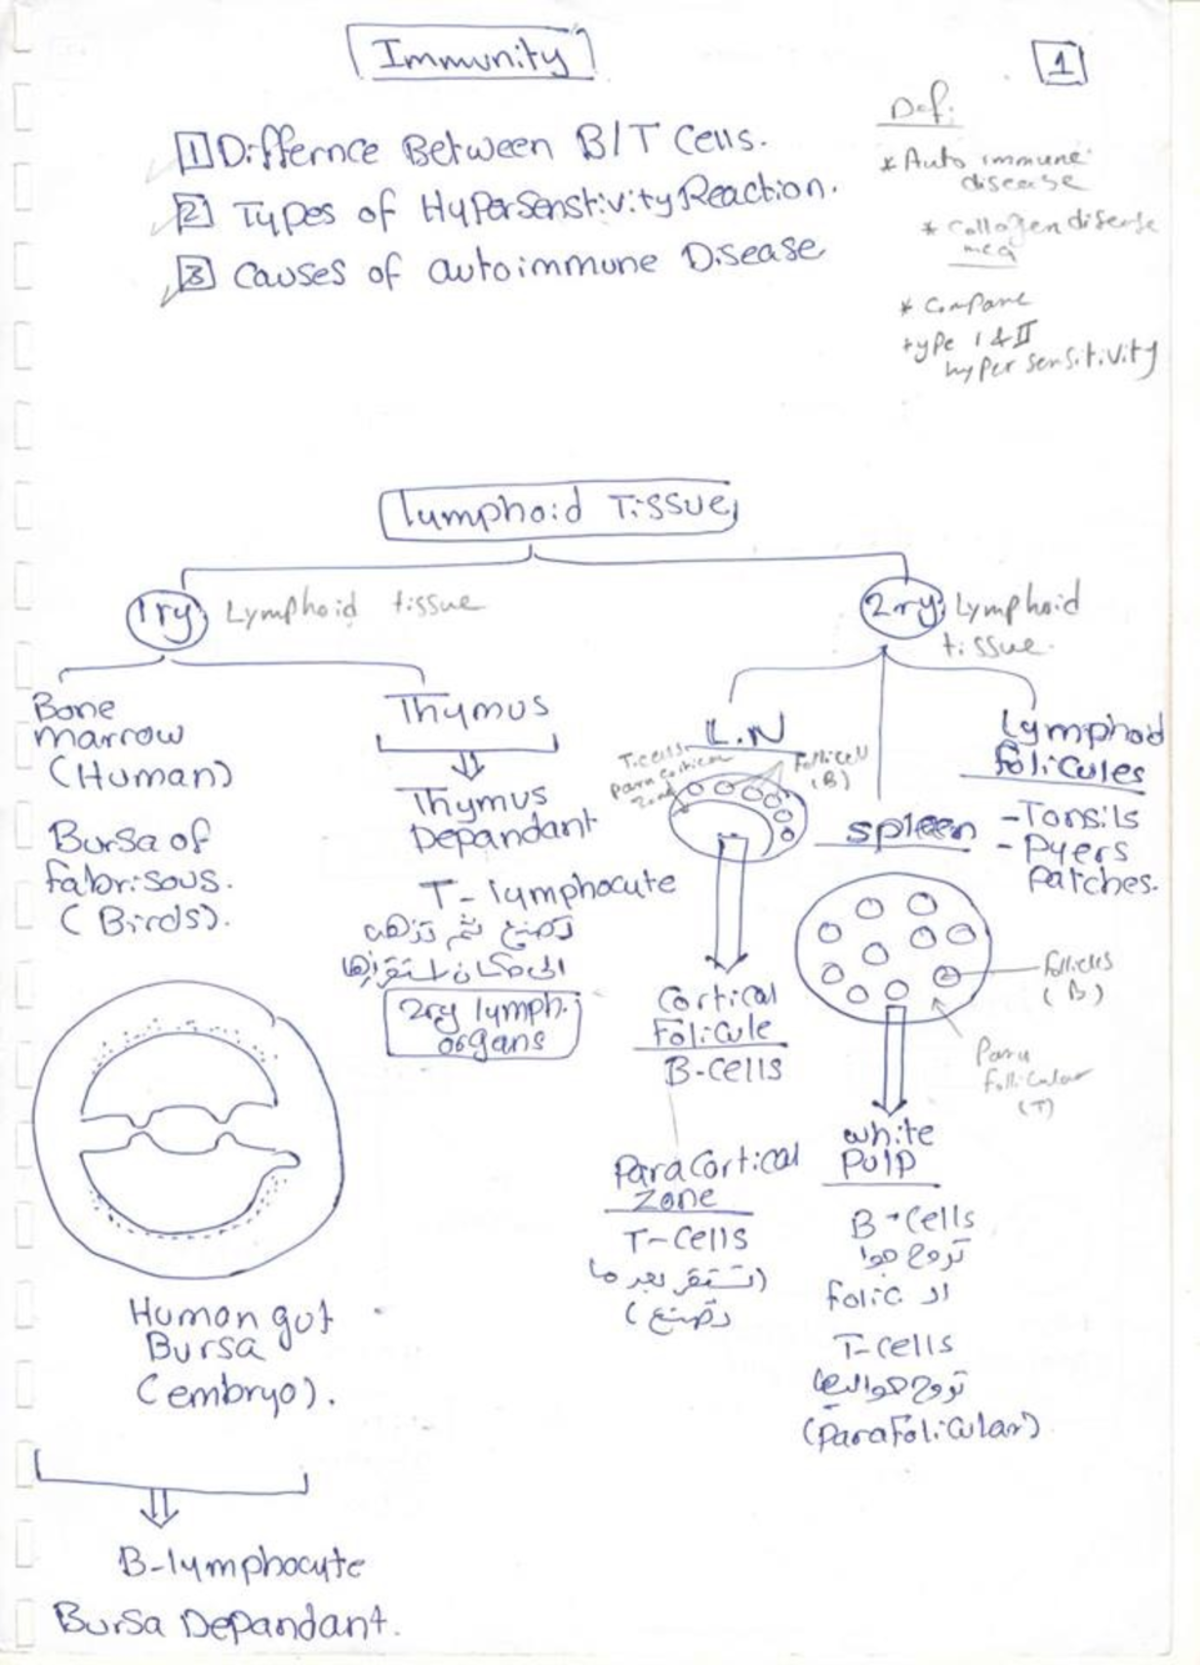 Immunity
1
1 Differnce Between B/T Cells.
2 Types of HyperSenstivity Reaction.
3 Causes of autoimmune Disease
Def:
* Auto immune
disease
* Collagen disease
mcq
* Compare
type I & II
hyper sensitivity
lymphoid Tissue
1ry Lymphoid tissue
Bone
marrow
(Human)
Bursa of
fabrisous.
(Birds).
Human gut
Bursa
(embryo).
B-lymphocyte
Bursa Depandant.
Thymus
Thymus
Depandant
T-lymphocyte
تصنع ثم تذهب
الى مكان استقرارها
2ry lymph.
organs
2ry Lymphoid
tissue.
L.N
T.cells
Para cortical
Zone
follicel
(B)
Cortical
Folicule
B-cells
Paracortical
Zone
T-cells
(تستقر بعد ما
تصنع)
spleen
follicles
(B)
Para
follicular
(T)
white
Pulp
B-cells
تروح جوا
ال folic.
T-cells
تروح حواليها
(Parafolicular)
Lymphoid
folicules
-Tonsils
-Pyers
Patches.